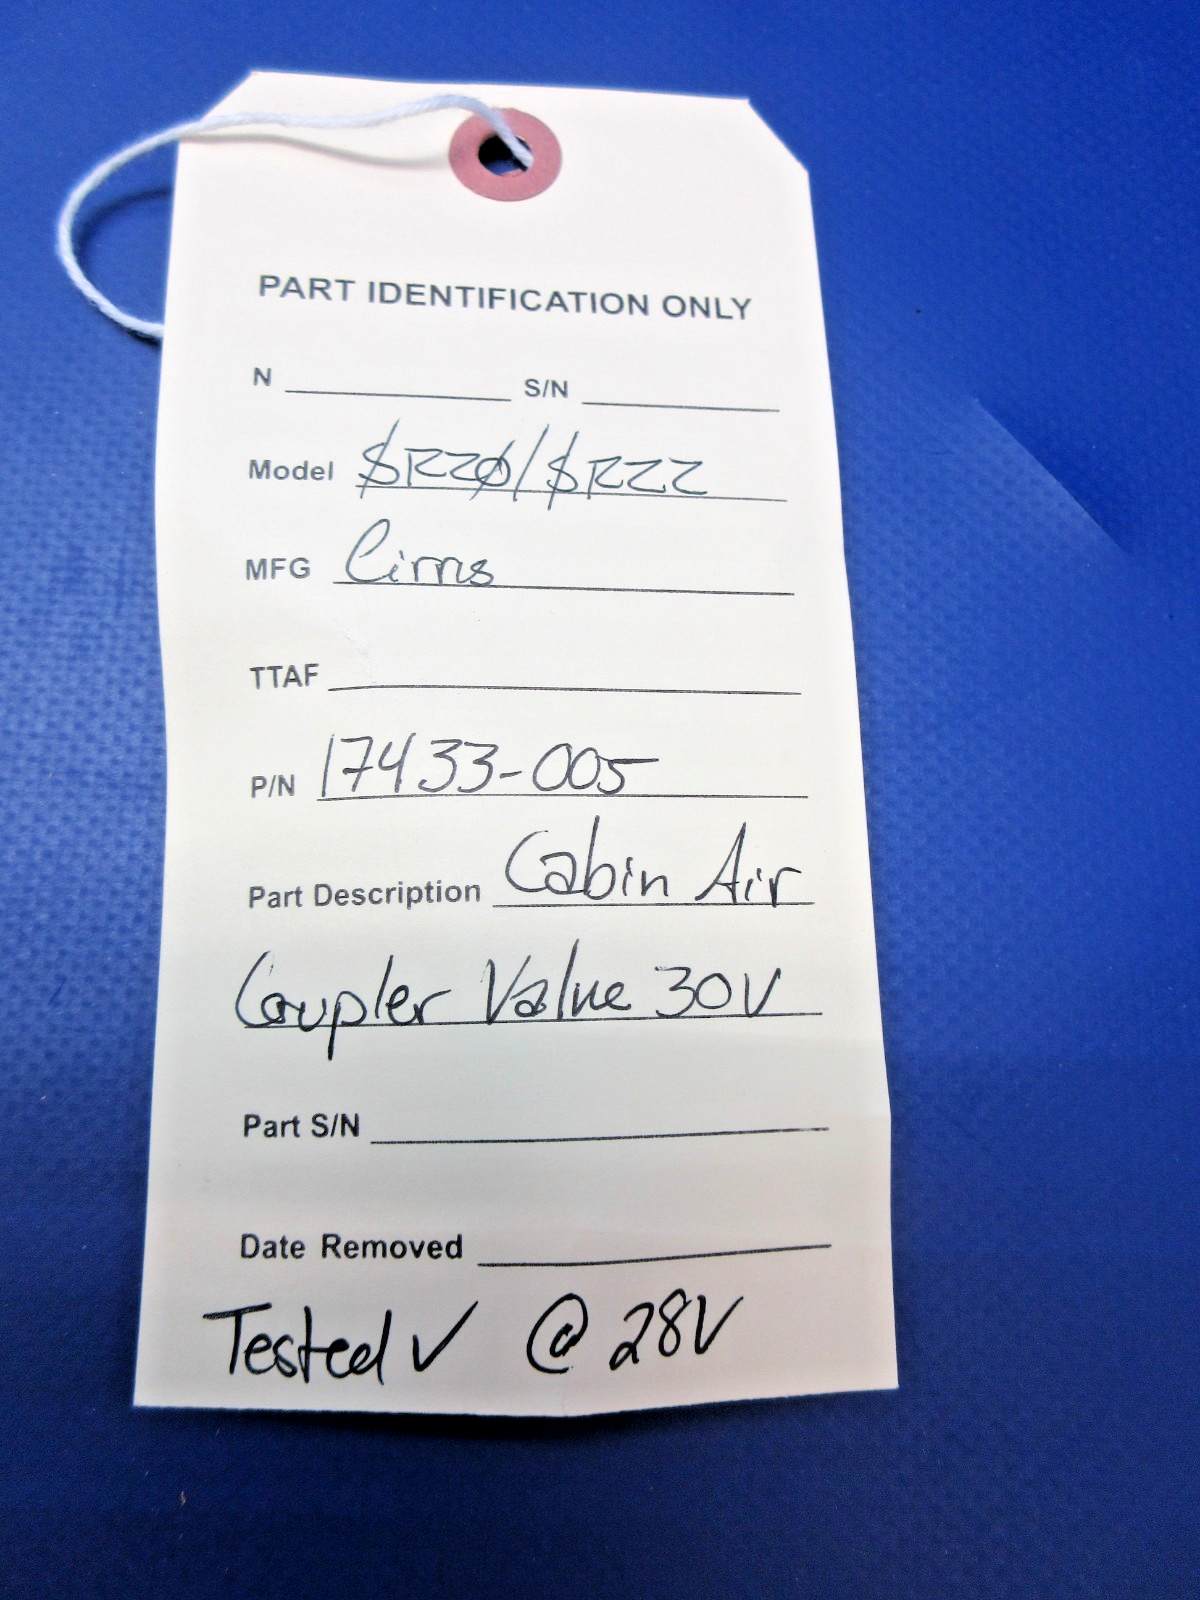 PART IDENTIFICATION ONLY
N S/N
Model SR20/SR22
MFG Cirrus
TTAF
P/N 17433-005
Part Description Cabin Air
Coupler Valve 30V
Part S/N
Date Removed
Tested ✓ @ 28V